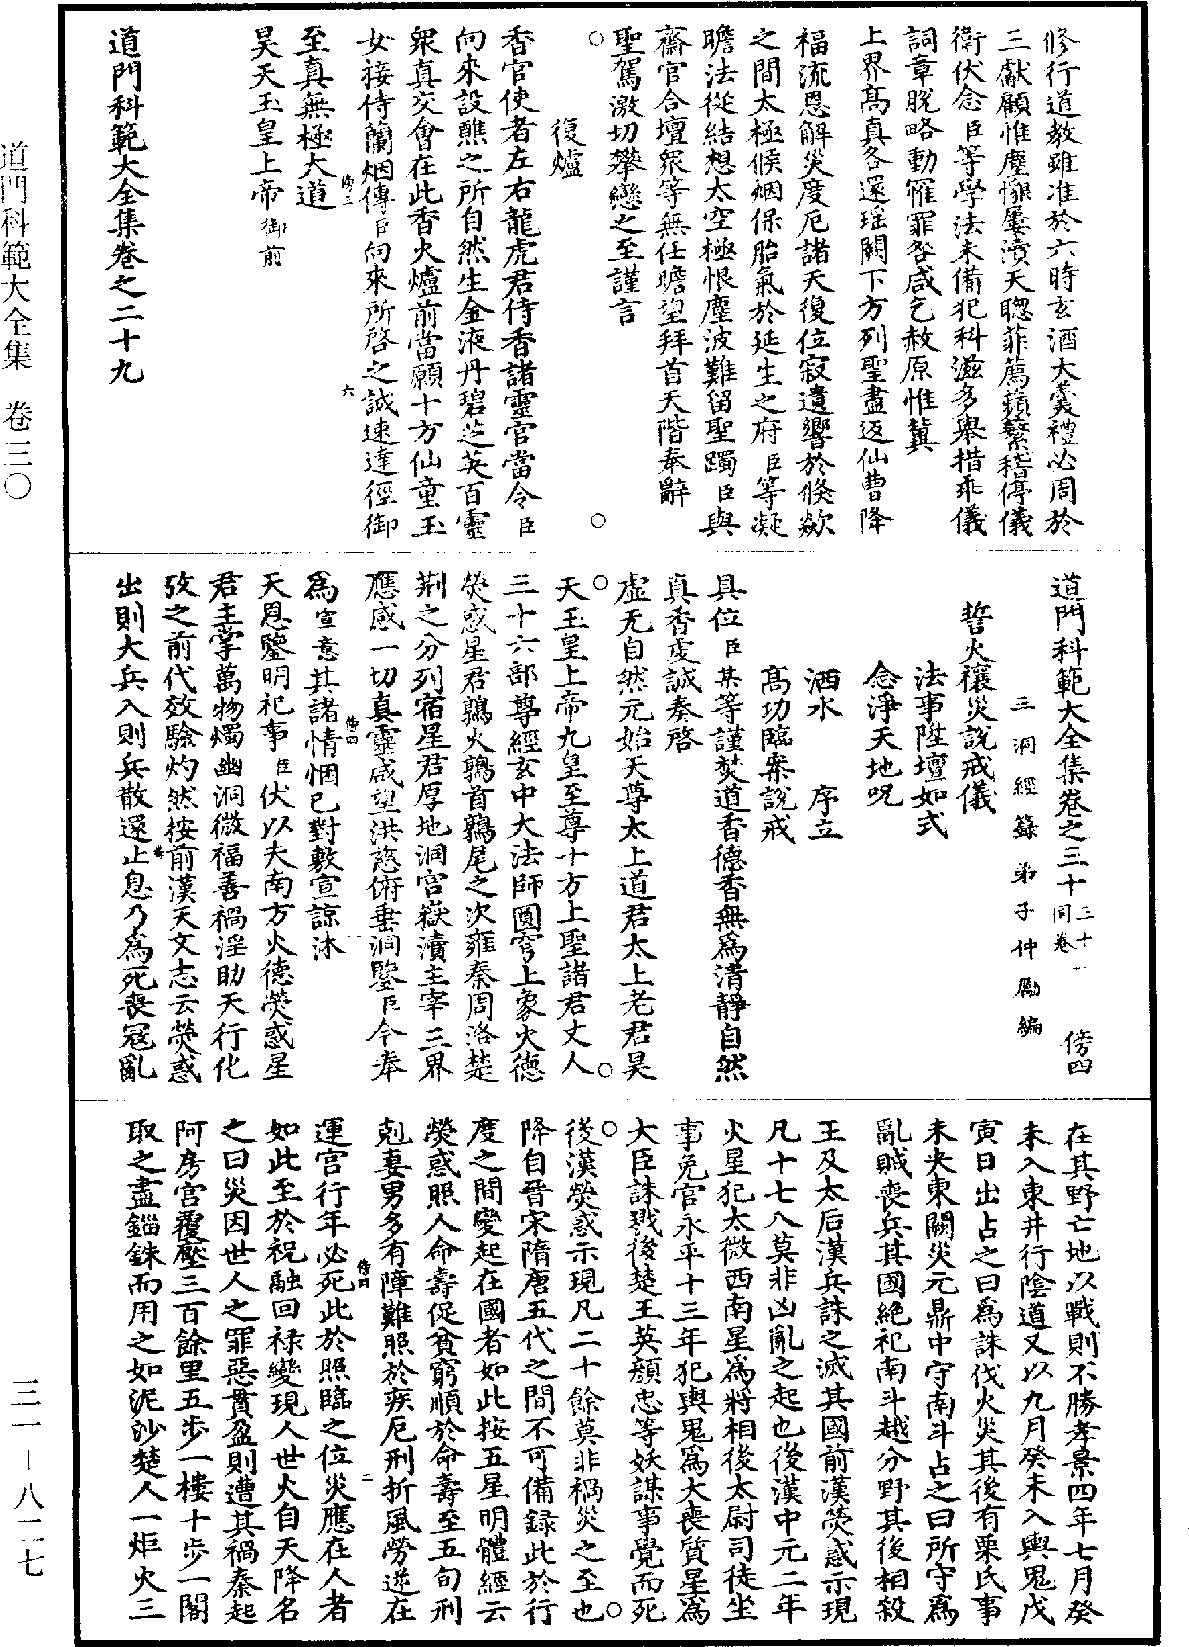 修行道教雖准於六時玄酒大羹禮必周於
三獻顧惟塵懷屢瀆天聰菲薦蘋蘩稽停儀
衛伏念臣等學法未備犯科滋多舉措乖儀
詞章脫略動罹罪咎咸乞赦原惟冀
上界高真各還瑶闕下方列聖盡返仙曹降
福流恩解災度厄諸天復位寂遺響於倏歘
之間太極候烟保胎氣於延生之府臣等凝
瞻法從結想太空極恨塵波難留聖躅臣與
齋官合壇衆等無任瞻望拜首天階奉辭
聖駕激切攀戀之至謹言
復爐
香官使者左右龍虎君侍香諸靈官當令臣
向來設醮之所自然生金液丹碧芝英百靈
衆真交會在此香火爐前當願十方仙童玉
女接侍蘭烟傳臣向來所啓之誠速達徑御
至真無極大道
昊天玉皇上帝御前
道門科範大全集卷之二十九
道門科範大全集卷之三十 三十一同卷 傍四
三洞經籙弟子仲勵編
誓火禳災說戒儀
法事陞壇如式
念淨天地呪
洒水 序立
高功臨案說戒
具位臣某等謹焚道香德香無為清靜自然
真香虔誠奏啓
虛无自然元始天尊太上道君太上老君昊
天玉皇上帝九皇至尊十方上聖諸君丈人
三十六部尊經玄中大法師圓穹上象火德
熒惑星君鶉火鶉首鶉尾之次雍秦周洛楚
荆之分列宿星君厚地洞宮嶽瀆主宰三界
應感一切真靈咸望洪慈俯垂洞鑒臣今奉
為宣意其諸情悃已對敷宣諒沐
天恩鑒明祀事臣伏以夫南方火德熒惑星
君主掌萬物燭幽洞微福善禍淫助天行化
攷之前代效驗灼然按前漢天文志云熒惑
出則大兵入則兵散還止息乃為死喪冦亂
在其野亡地以戰則不勝孝景四年七月癸
未入東井行陰道又以九月癸未入輿鬼戊
寅日出占之曰為誅伐火災其後有栗氏事
未央東闕災元鼎中守南斗占之曰所守為
亂賊喪兵其國絕祀南斗越分野其後相殺
王及太后漢兵誅之滅其國前漢熒惑示現
凡十七八莫非凶亂之起也後漢中元二年
火星犯太微西南星為將相後太尉司徒坐
事免官永平十三年犯輿鬼為大喪質星為
大臣誅戮後楚王英顏忠等妖謀事覺而死
後漢熒惑示現凡二十餘莫非禍災之至也
降自晉宋隋唐五代之間不可備録此於行
度之間變起在國者如此按五星明體經云
熒惑照人命壽促貧窮順於命壽至五旬刑
剋妻男多有障難照於疾厄刑折風勞逆在
運宮行年必死此於照臨之位災應在人者
如此至於祝融回禄變現人世火自天降名
之曰災因世人之罪惡貫盈則遭其禍秦起
阿房宮覆壓三百餘里五步一樓十步一閣
取之盡錙銖而用之如泥沙楚人一炬火三
道門科範大全集 卷三〇
三一－八二七